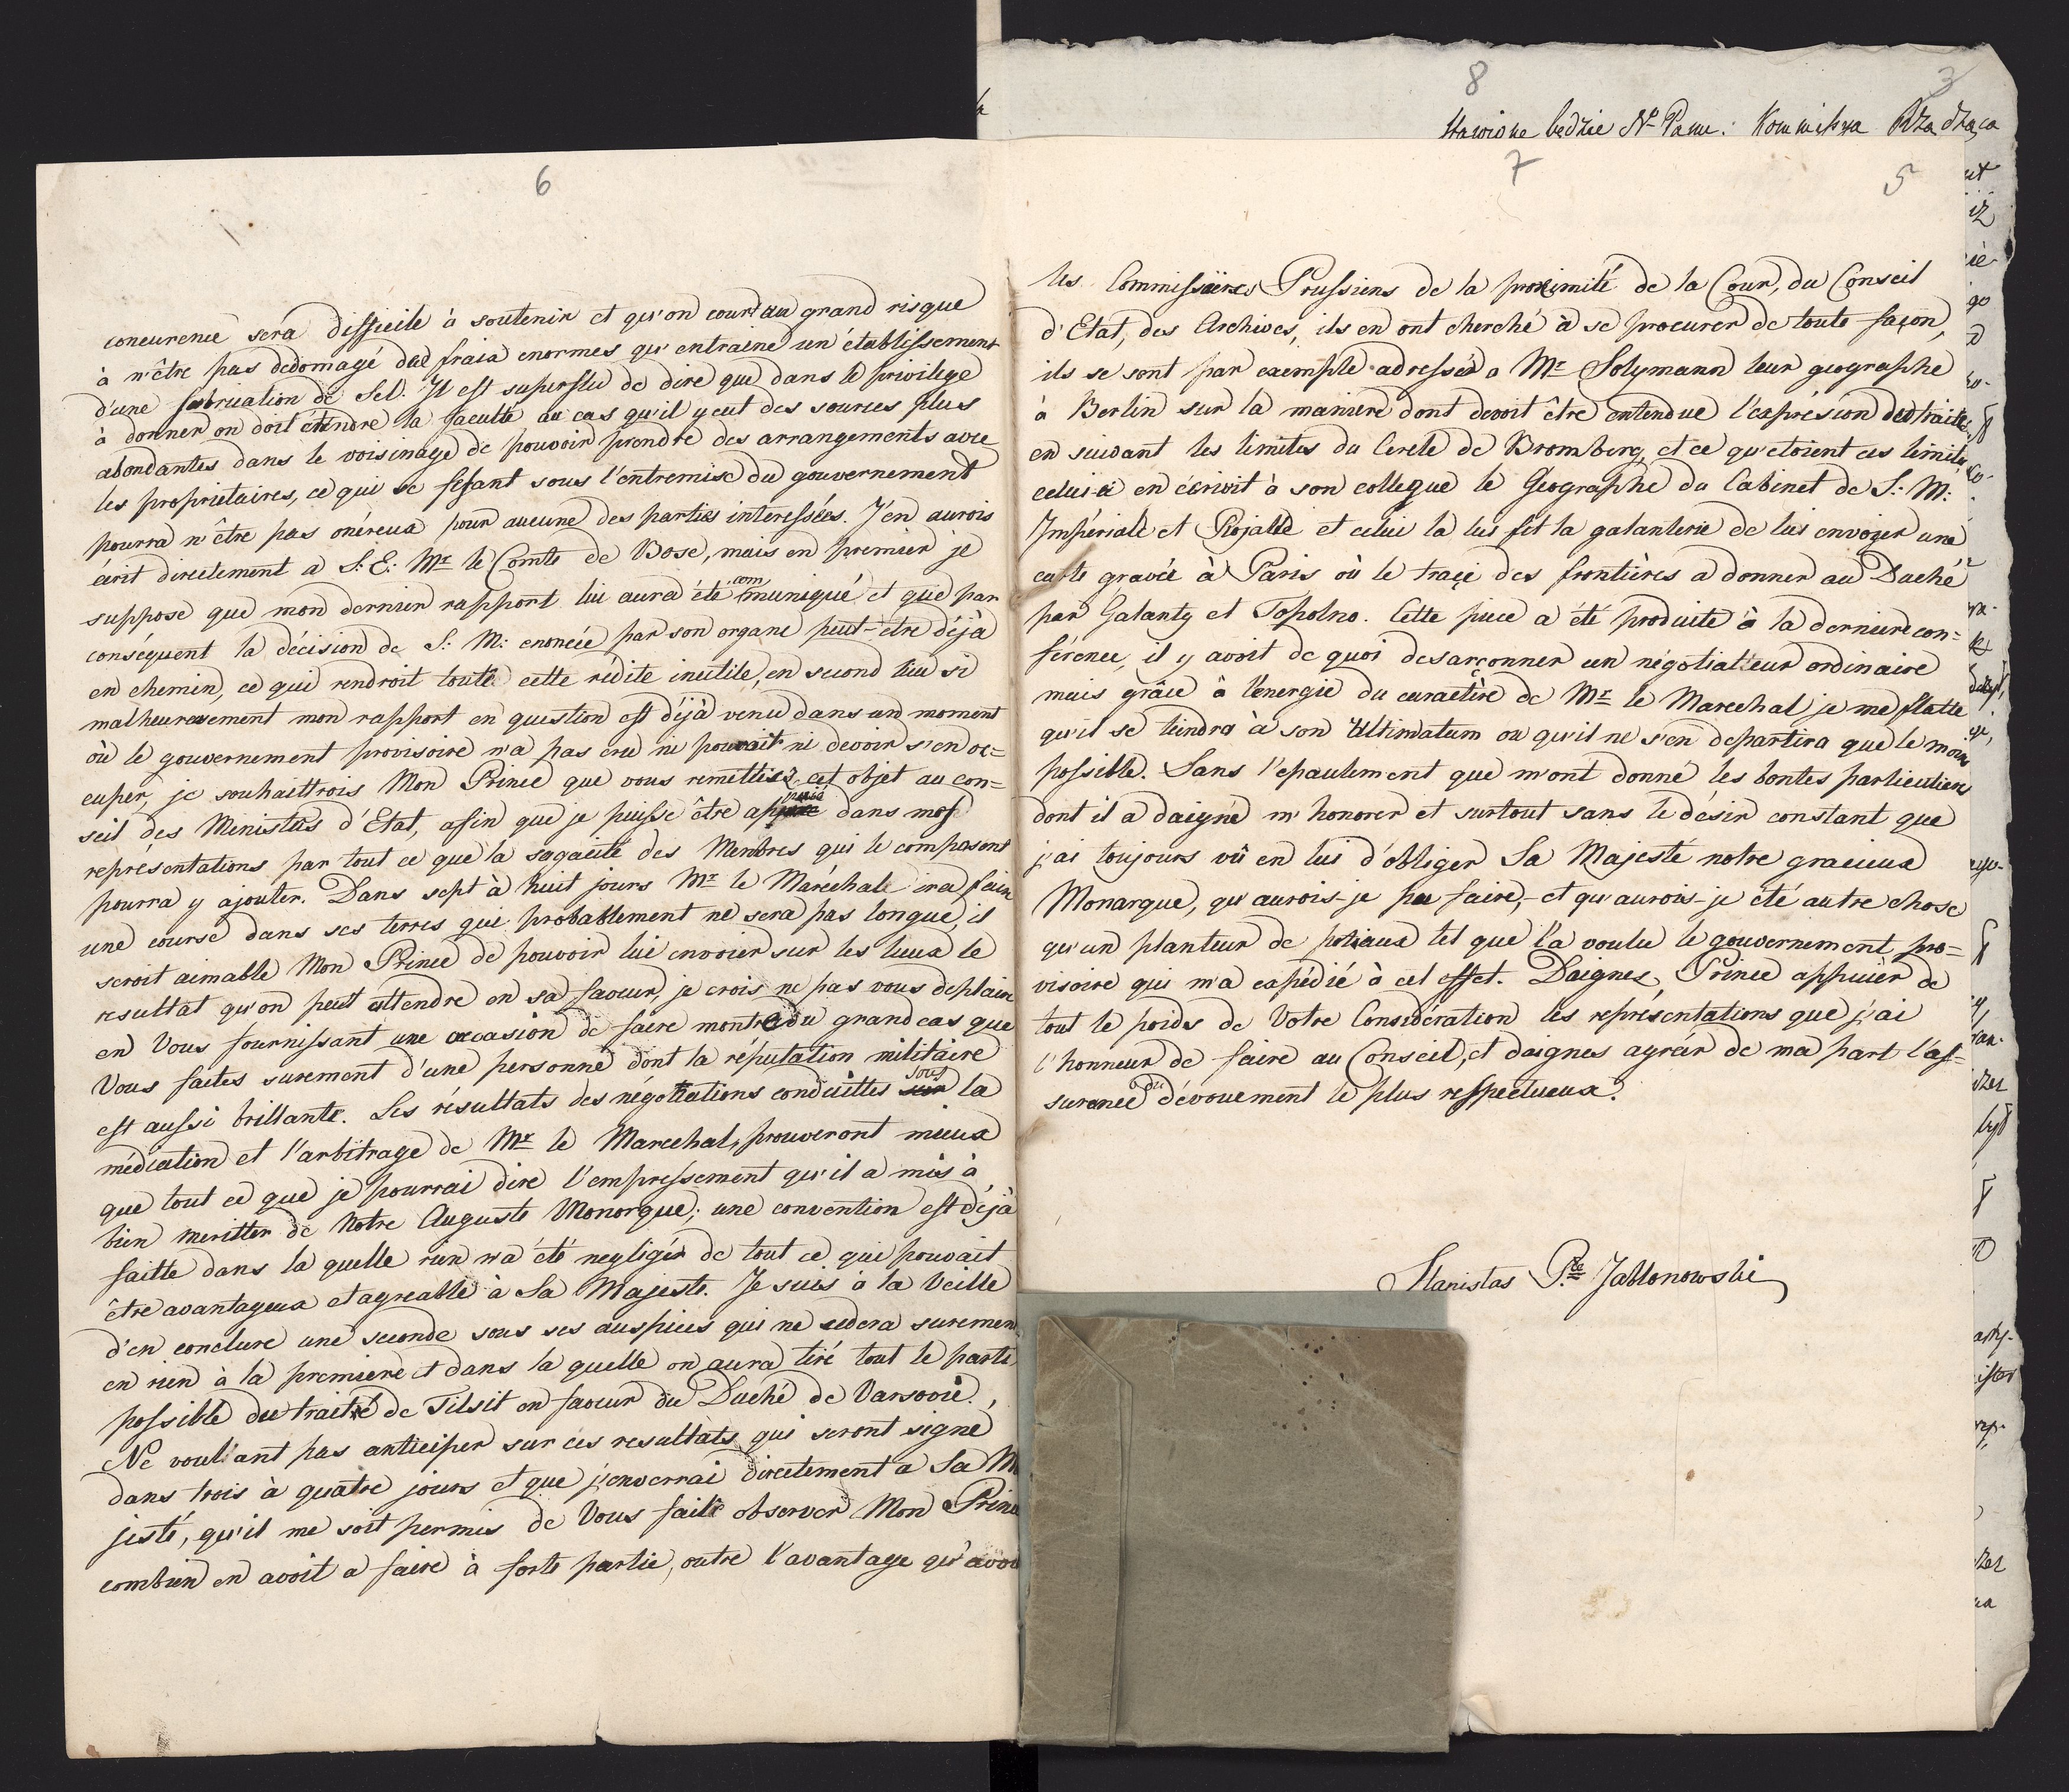 8
3
stawione będzie Nr Panu. Kommissya Rządząca
6
concurence sera difficile à soutenir et qu'on court au grand risque
à n'être pas dedomagé des fraix enormes qu'entraine un établissement
d'une fabrication de Sel. Il est superflu de dire que dans le privilege
à donner on doit étendre la faculté au cas qu'il y eut des sources plus
abondantes dans le voisinage de pouvoir prendre des arrangements avec
les proprietaires, ce qui se fesant sous l'entremise du gouvernement
pourra n'être pas onéreux pour aucune des parties interessées. J'en aurois
écrit directement a S: E: Mr le Comte de Bose, mais en premier je
suppose que mon dernier rapport lui aura été communiqué et que par
conséquent la décision de S: M: enoncée par son organe peut-être déjà
en chemin, ce qui rendroit toute cette rédite inutile, en second lieu si
malheureusement mon rapport en question est déjà venu dans un moment
où le gouvernement provisoire n'a pas cru ni pouvoit ni devoir s'en oc=
cuper, je souhaittrois Mon Prince que vous remettiez cet objet au con=
seil des Ministres d'Etat, afin que je puisse être appuié dans mes
représentations par tout ce que la sagacité des Membres qui le composent
pourra y ajouter. Dans sept à huit jours Mr le Maréchale ira faire
une course dans ses terres qui probablement ne sera pas longue, il
seroit aimable Mon Prince de pouvoir lui envoier sur les lieux le
resultat qu'on peut attendre en sa faveur, je crois ne pas vous deplaire
en Vous fournissant une occasion de faire montre du grand cas que
Vous faites surement d'une personne dont la réputation militaire
est aussi brillante. Les résultats des négotiations conduittes sous la
médiation et l'arbitrage de Mr le Marechal, prouveront mieux
que tout ce que je pourrai dire l'empressement qu'il a mis à
bien meritter de Notre Auguste Monarque; une convention est déjà
faitte dans la quelle rien n'a été negligés de tout ce qui pouvait
être avantageux et agreable à Sa Majesté. Je suis à la Veille
d'en conclure une seconde sous ses auspices qui ne cedera surement
en rien à la premiere et dans la quelle on aura tiré tout le parti
possible du traité de Tilsit en faveur du Duché de Varsovie.
Ne voulant pas anticiper sur ces resultats qui seront signé
dans trois à quatre jours et que j'enverrai directement a Sa Ma
jesté, qu'il me soit permis de Vous faite observer Mon Prince
combien on avoit a faire à forte partie, outre l'avantage qu'avoi
7
5
les Commissaires Prussiens de la proximité de la Cour, du Conseil
d'Etat, des Archives, ils en ont cherché à se procurer de toute façon,
ils se sont par exemple adressés a Mr Solymann leur geographe
à Berlin sur la maniere dont devoit être entendue l'exprésion des traités
en suivant les limites du Cercle de Bromberg, et ce qu'etoient ces limites
celui ci en ecrivit à son collegue le Geographe du Cabinet de S: M:
Impériale et Rojalle et celui la lui fit la galanterie de lui envoyer une
carte gravée à Paris où le traçé des frontières a donner au Duché
par Galanty et Topolno. Cette piece a été produite à la derniere con=
férence, il y avoit de quoi desarçonner un négotiateur ordinaire
mais grâce à l'energie du caractère de Mr le Marechal je me flatte
qu'il se tiendra à son Ultimatum ou qu'il ne s'en departira que le moins
possible. Sans l'epaulement que m'ont donné les bontes particulieres
dont il a daigné m'honorer et surtout sans le désir constant que
j'ai toujours vû en lui d'obliger Sa Majesté notre gracieux
Monarque, qu'aurois-je pu faire,- et qu'aurois-je été autre chose
qu'un planteur de poteaux tel que l'a voulu le gouvernement pro=
visoire qui m'a expédié à cet effet. Daignez, Prince appuier de
tout le poids de Votre Considération les représentations que j'ai
l'honneur de faire au Conseil, et daignes agréer de ma part l'as=
surance du dévouement le plus respectueux.
Stanislas Pce Jabłonowski